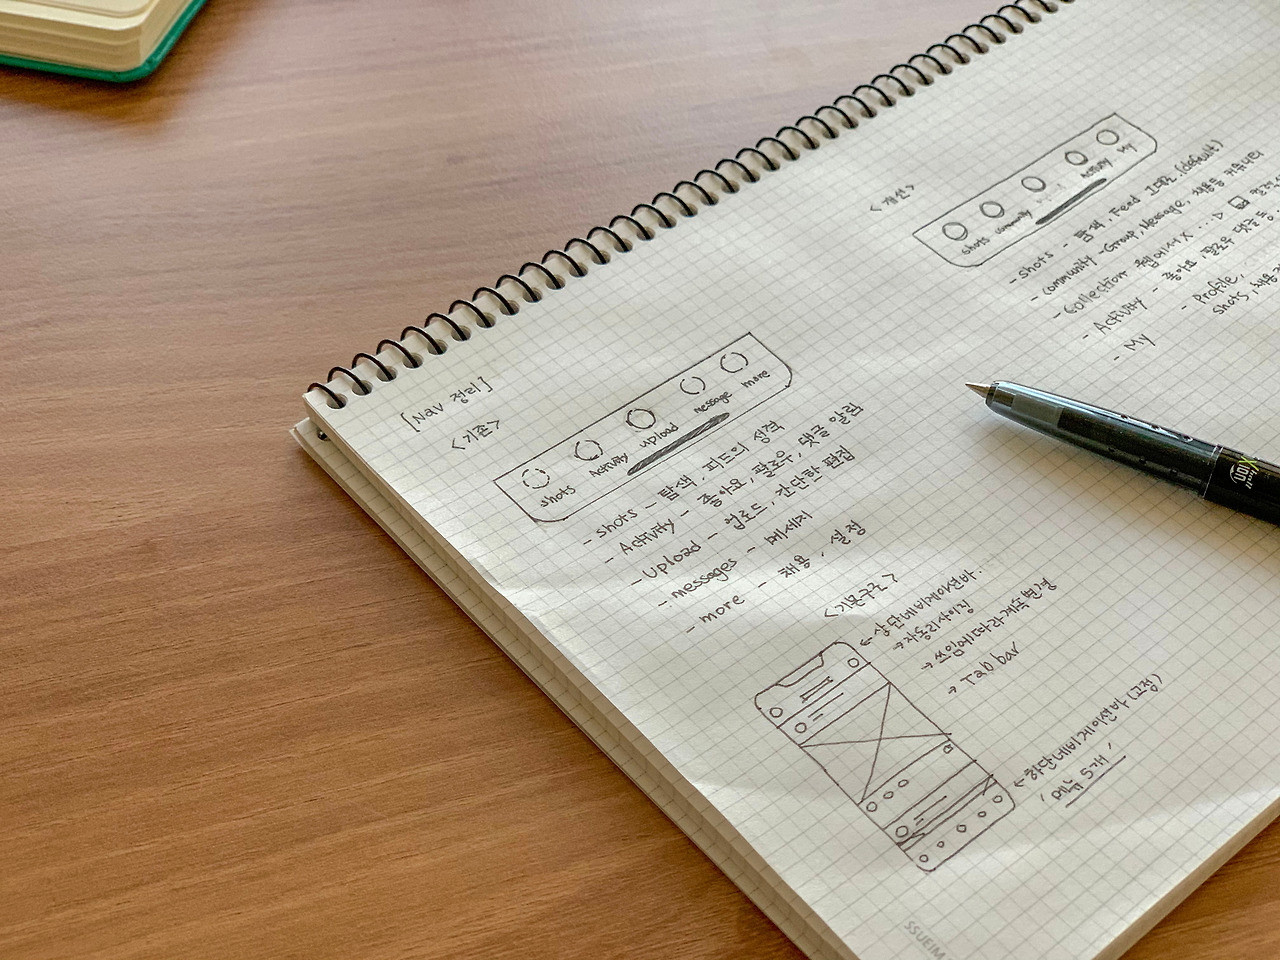 [Nav 정리]
<기존>
shots Activity upload message more
- shots - 탐색, 피드의 성격
- Activity - 좋아요, 팔로우, 댓글 알림
- Upload - 업로드, 간단한 편집
- messages - 메세지
- more - 채용, 설정
<기본구조>
← 상단네비게이션바.
→ 자동리사이징
→ 쓰임에 따라 계속 변경
→ Tab bar
← 하단네비게이션바 (고정)
'메뉴 5개'
<개선>
shots community Activity My
- shots - 탐색, Feed (default)
- community - Group, Message, 채용등 커뮤니티
- Collection 웹에서 X ...▷
- Activity - 좋아요 팔로우 댓글 등
- My - Profile,
shots,
SSUEIM